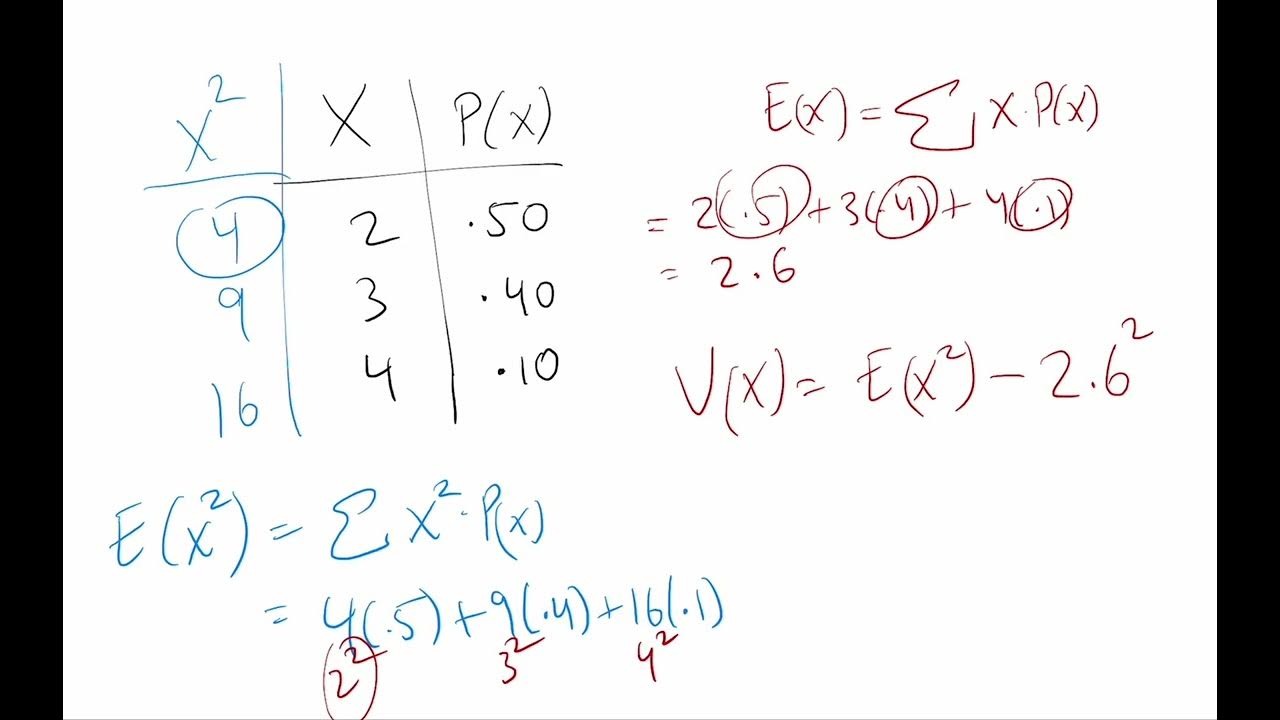 X² X P(x)
4 2 .50
9 3 .40
16 4 .10
E(x) = ∑ x·P(x)
= 2(.5) + 3(.4) + 4(.1)
= 2.6
V(x) = E(x²) − 2.6²
E(x²) = ∑ x²·P(x)
= 4(.5) + 9(.4) + 16(.1)
2² 3² 4²